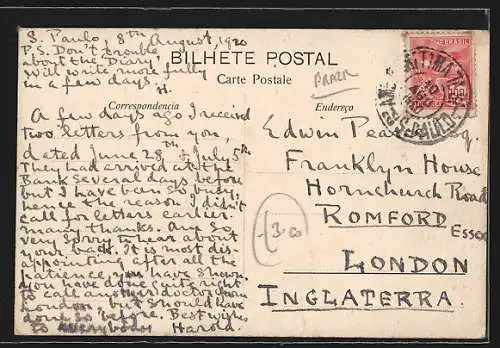 S. Paulo, 8th August, 1920
P.S. Don't trouble
about the 'Diary',
will write more fully
in a few days.
H.
BILHETE POSTAL
Carte Postale
Correspondencia
Endereço
BRASIL
A few days ago I received
two letters from you,
dated June 28th & July 5th
They had arrived at the
Bank several days before
but I have been so busy,
hence the reason I didn't
call for letters earlier.
many thanks. Am so
very sorry to hear about
your back. It is most dis-
appointing after all the
patience you have shown.
you have done quite right
to call another doctor from
London, but should have
done so before. Best wishes
to everybody Harold.
Edwin
Franklyn House
Hornchurch Road
ROMFORD
Essex
LONDON
INGLATERRA.